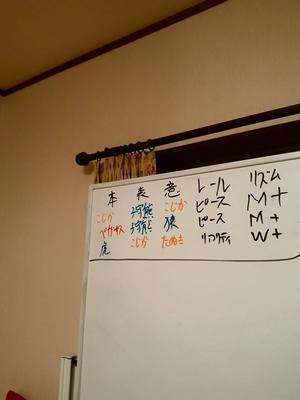 本 表 意 レール リズム
こじか 子守熊 こじか ピース M+
ペガサス 子守熊 ピース M+
虎 こじか たぬき リアリティ W+